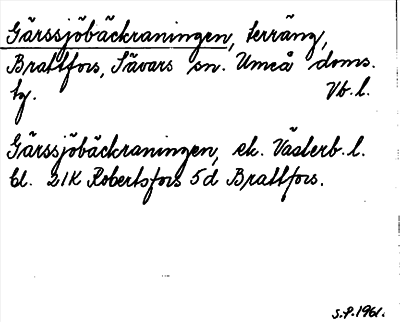 Gärssjöbäckraningen, terräng,
Brattfors, Sävars sn. Umeå doms.
tg. Vb.l.
Gärssjöbäckraningen, ek. Västerb.l.
bl. 21K Robertsfors 5d Brattfors.
S.P.1961.